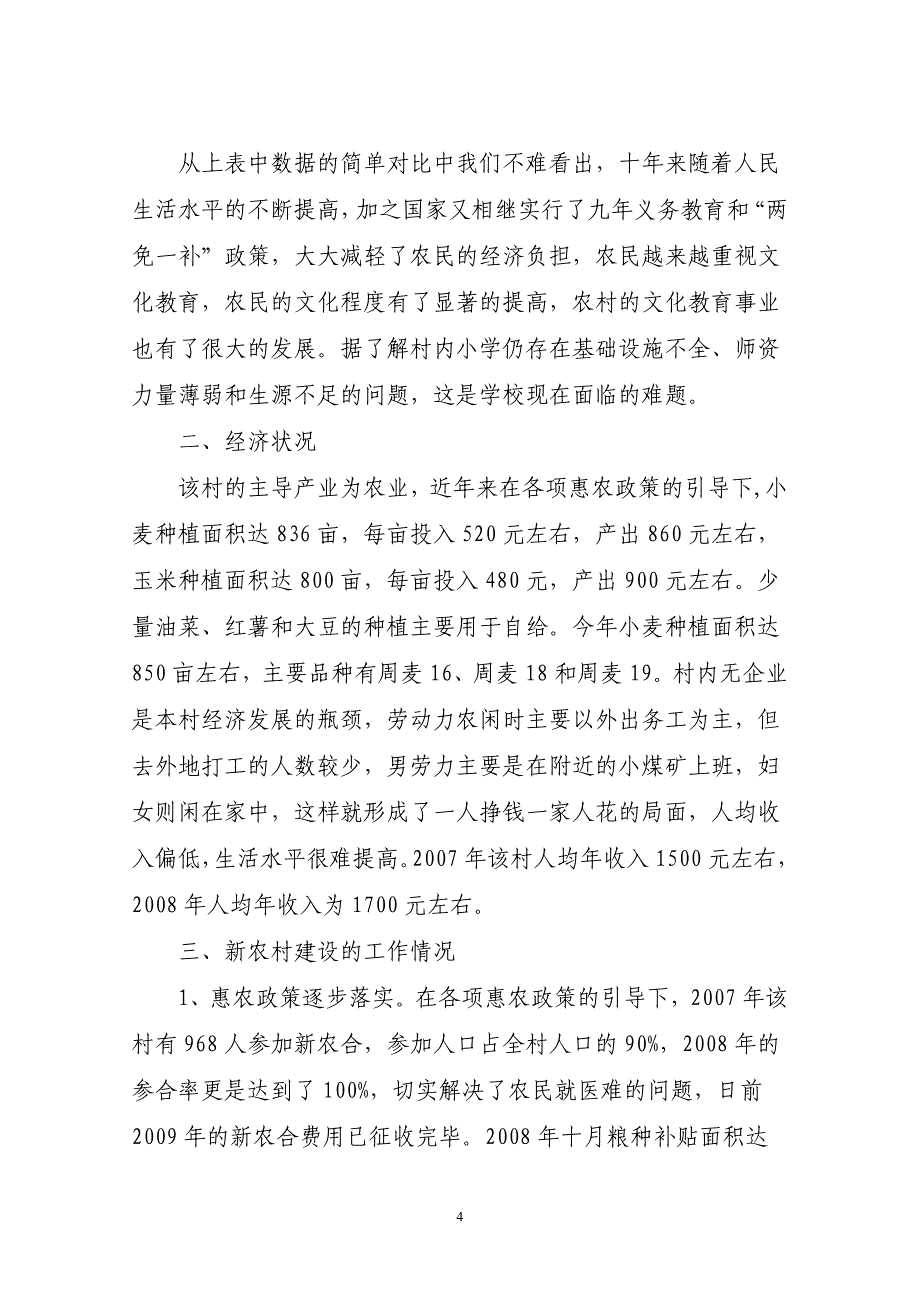 从上表中数据的简单对比中我们不难看出，十年来随着人民
生活水平的不断提高，加之国家又相继实行了九年义务教育和“两
免一补”政策，大大减轻了农民的经济负担，农民越来越重视文
化教育，农民的文化程度有了显著的提高，农村的文化教育事业
也有了很大的发展。据了解村内小学仍存在基础设施不全、师资
力量薄弱和生源不足的问题，这是学校现在面临的难题。
二、经济状况
该村的主导产业为农业，近年来在各项惠农政策的引导下，小
麦种植面积达 836 亩，每亩投入 520 元左右，产出 860 元左右，
玉米种植面积达 800 亩，每亩投入 480 元，产出 900 元左右。少
量油菜、红薯和大豆的种植主要用于自给。今年小麦种植面积达
850 亩左右，主要品种有周麦 16、周麦 18 和周麦 19。村内无企业
是本村经济发展的瓶颈，劳动力农闲时主要以外出务工为主，但
去外地打工的人数较少，男劳力主要是在附近的小煤矿上班，妇
女则闲在家中，这样就形成了一人挣钱一家人花的局面，人均收
入偏低，生活水平很难提高。2007 年该村人均年收入 1500 元左右，
2008 年人均年收入为 1700 元左右。
三、新农村建设的工作情况
1、惠农政策逐步落实。在各项惠农政策的引导下，2007 年该
村有 968 人参加新农合，参加人口占全村人口的 90%，2008 年的
参合率更是达到了 100%，切实解决了农民就医难的问题，日前
2009 年的新农合费用已征收完毕。2008 年十月粮种补贴面积达
4